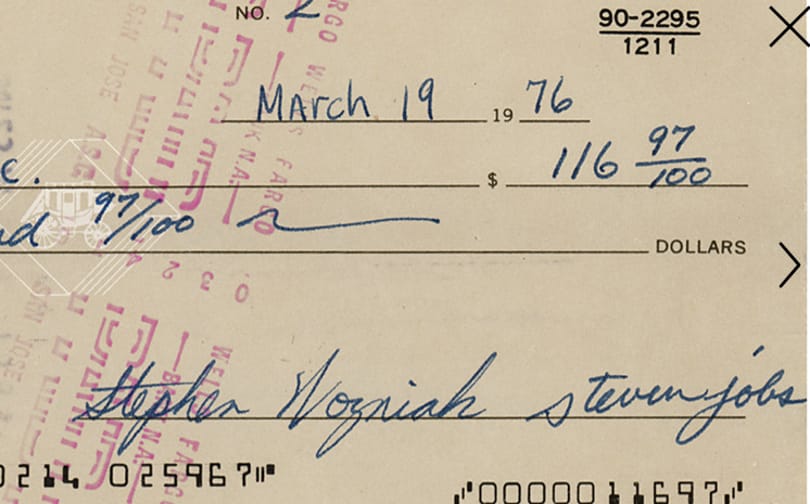 NO. 2
90-2295
1211
March 19 19 76
c. $ 116 97/100
nd 97/100 DOLLARS
Stephen Wozniak steven jobs
0214 025967 0000011697
WELLS FARGO
BANK N.A.
SAN JOSE